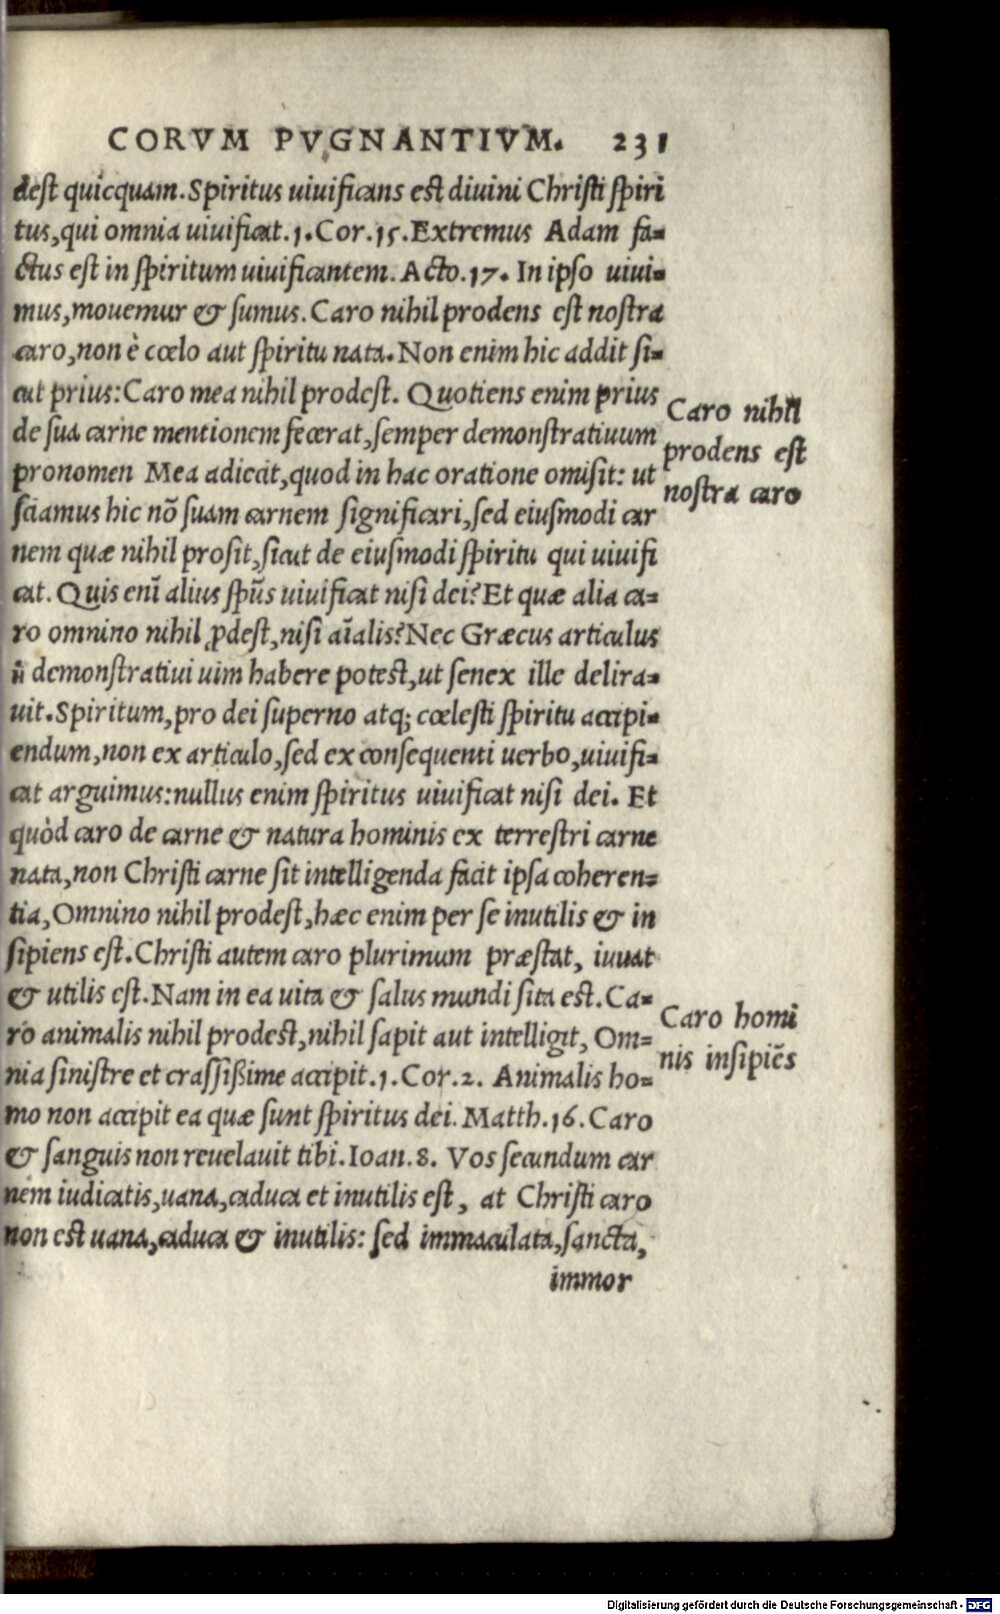 CORVM PVGNANTIVM. 231
dest quicquam. Spiritus uiuificans est diuini Christi spiri
tus, qui omnia uiuificat. 1. Cor. 15. Extremus Adam fa=
ctus est in spiritum uiuificantem. Acto. 17. In ipso uiui=
mus, mouemur & sumus. Caro nihil prodens est nostra
caro, non è cœlo aut spiritu nata. Non enim hic addit si=
cut prius: Caro mea nihil prodest. Quotiens enim prius
de sua carne mentionem fecerat, semper demonstratiuum
pronomen Mea adiecit, quod in hac oratione omisit: ut
sciamus hic nō suam carnem significari, sed eiusmodi car
nem quæ nihil prosit, sicut de eiusmodi spiritu qui uiuifi
cat. Quis enī alius spūs uiuificat nisi dei? Et quæ alia ca=
ro omnino nihil ꝓdest, nisi aīalis? Nec Græcus articulus
demonstratiui uim habere potest, ut senex ille delira=
uit. Spiritum, pro dei superno atq; cœlesti spiritu accipi=
endum, non ex articulo, sed ex consequenti uerbo, uiuifi=
cat arguimus: nullus enim spiritus uiuificat nisi dei. Et
quòd caro de carne & natura hominis ex terrestri carne
nata, non Christi carne sit intelligenda facit ipsa coheren=
tia, Omnino nihil prodest, hæc enim per se inutilis & in
sipiens est. Christi autem caro plurimum præstat, iuuat
& utilis est. Nam in ea uita & salus mundi sita est. Ca=
ro animalis nihil prodest, nihil sapit aut intelligit, Om=
nia sinistre et crassissime accipit. 1. Cor. 2. Animalis ho=
mo non accipit ea quæ sunt spiritus dei. Matth. 16. Caro
& sanguis non reuelauit tibi. Ioan. 8. Vos secundum car
nem iudicatis, uana, caduca et inutilis est, at Christi caro
non est uana, caduca & inutilis: sed immaculata, sancta,
immor
Caro nihil
prodens est
nostra caro
Caro homi
nis insipiēs
Digitalisierung gefördert durch die Deutsche Forschungsgemeinschaft - DFG